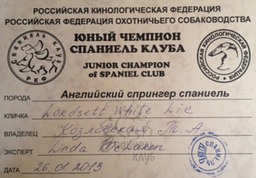 РОССИЙСКАЯ КИНОЛОГИЧЕСКАЯ ФЕДЕРАЦИЯ
РОССИЙСКАЯ ФЕДЕРАЦИЯ ОХОТНИЧЬЕГО СОБАКОВОДСТВА
ЮНЫЙ ЧЕМПИОН
СПАНИЕЛЬ КЛУБА
JUNIOR CHAMPION
of SPANIEL CLUB
ПОРОДА Английский спрингер спаниель
КЛИЧКА Lordsett White Lie
ВЛАДЕЛЕЦ Козловская Т А
ЭКСПЕРТ Linda
КЛУБ
ДАТА 26.01.2013